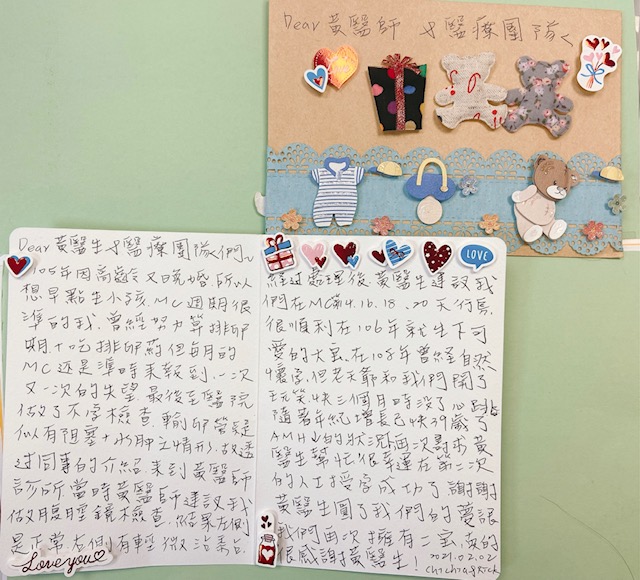 Dear 黃醫師 & 醫療團隊
Dear 黃醫生 & 醫療團隊們
105年因高齡又晚婚.所以
想早點生小孩.MC週期很
準的我.曾經努力算排卵
期.+吃排卵藥.但每月的
MC還是準時來報到.一次
又一次的失望.最後至醫院
做了不孕檢查.輸卵管疑
似有阻塞+水腫之情形.故透
過同事的介紹.來到黃醫師
診所.當時黃醫師建議我
做腹腔鏡檢查.結果左側
是正常.右側有輕微沾黏
Love you
LOVE
經過處理後.黃醫生建議我
們在MC第14.16.18.20天行房.
很順利在106年就生下可
愛的大寶.在108年曾經自然
懷孕.但老天爺和我們開了
玩笑.快三個月時沒了心跳
隨著年紀增長已快39歲了
AMH↓的狀況.再次尋求黃
醫生幫忙.很幸運在第二次
的人工授孕成功了.謝謝
黃醫生圓了我們的夢.讓
我們再次擁有二寶.真的
很感謝黃醫生!
2021.02.02